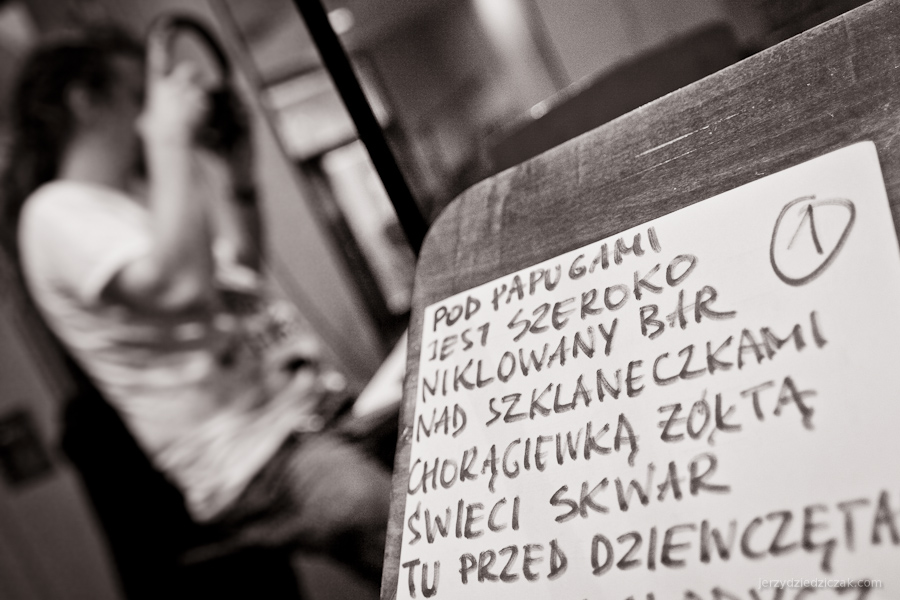 1
POD PAPUGAMI
JEST SZEROKO
NIKLOWANY BAR
NAD SZKLANECZKAMI
CHORĄGIEWKĄ ŻÓŁTĄ
ŚWIECI SKWAR
TU PRZED DZIEWCZĘTA
jerzydziedziczak.com